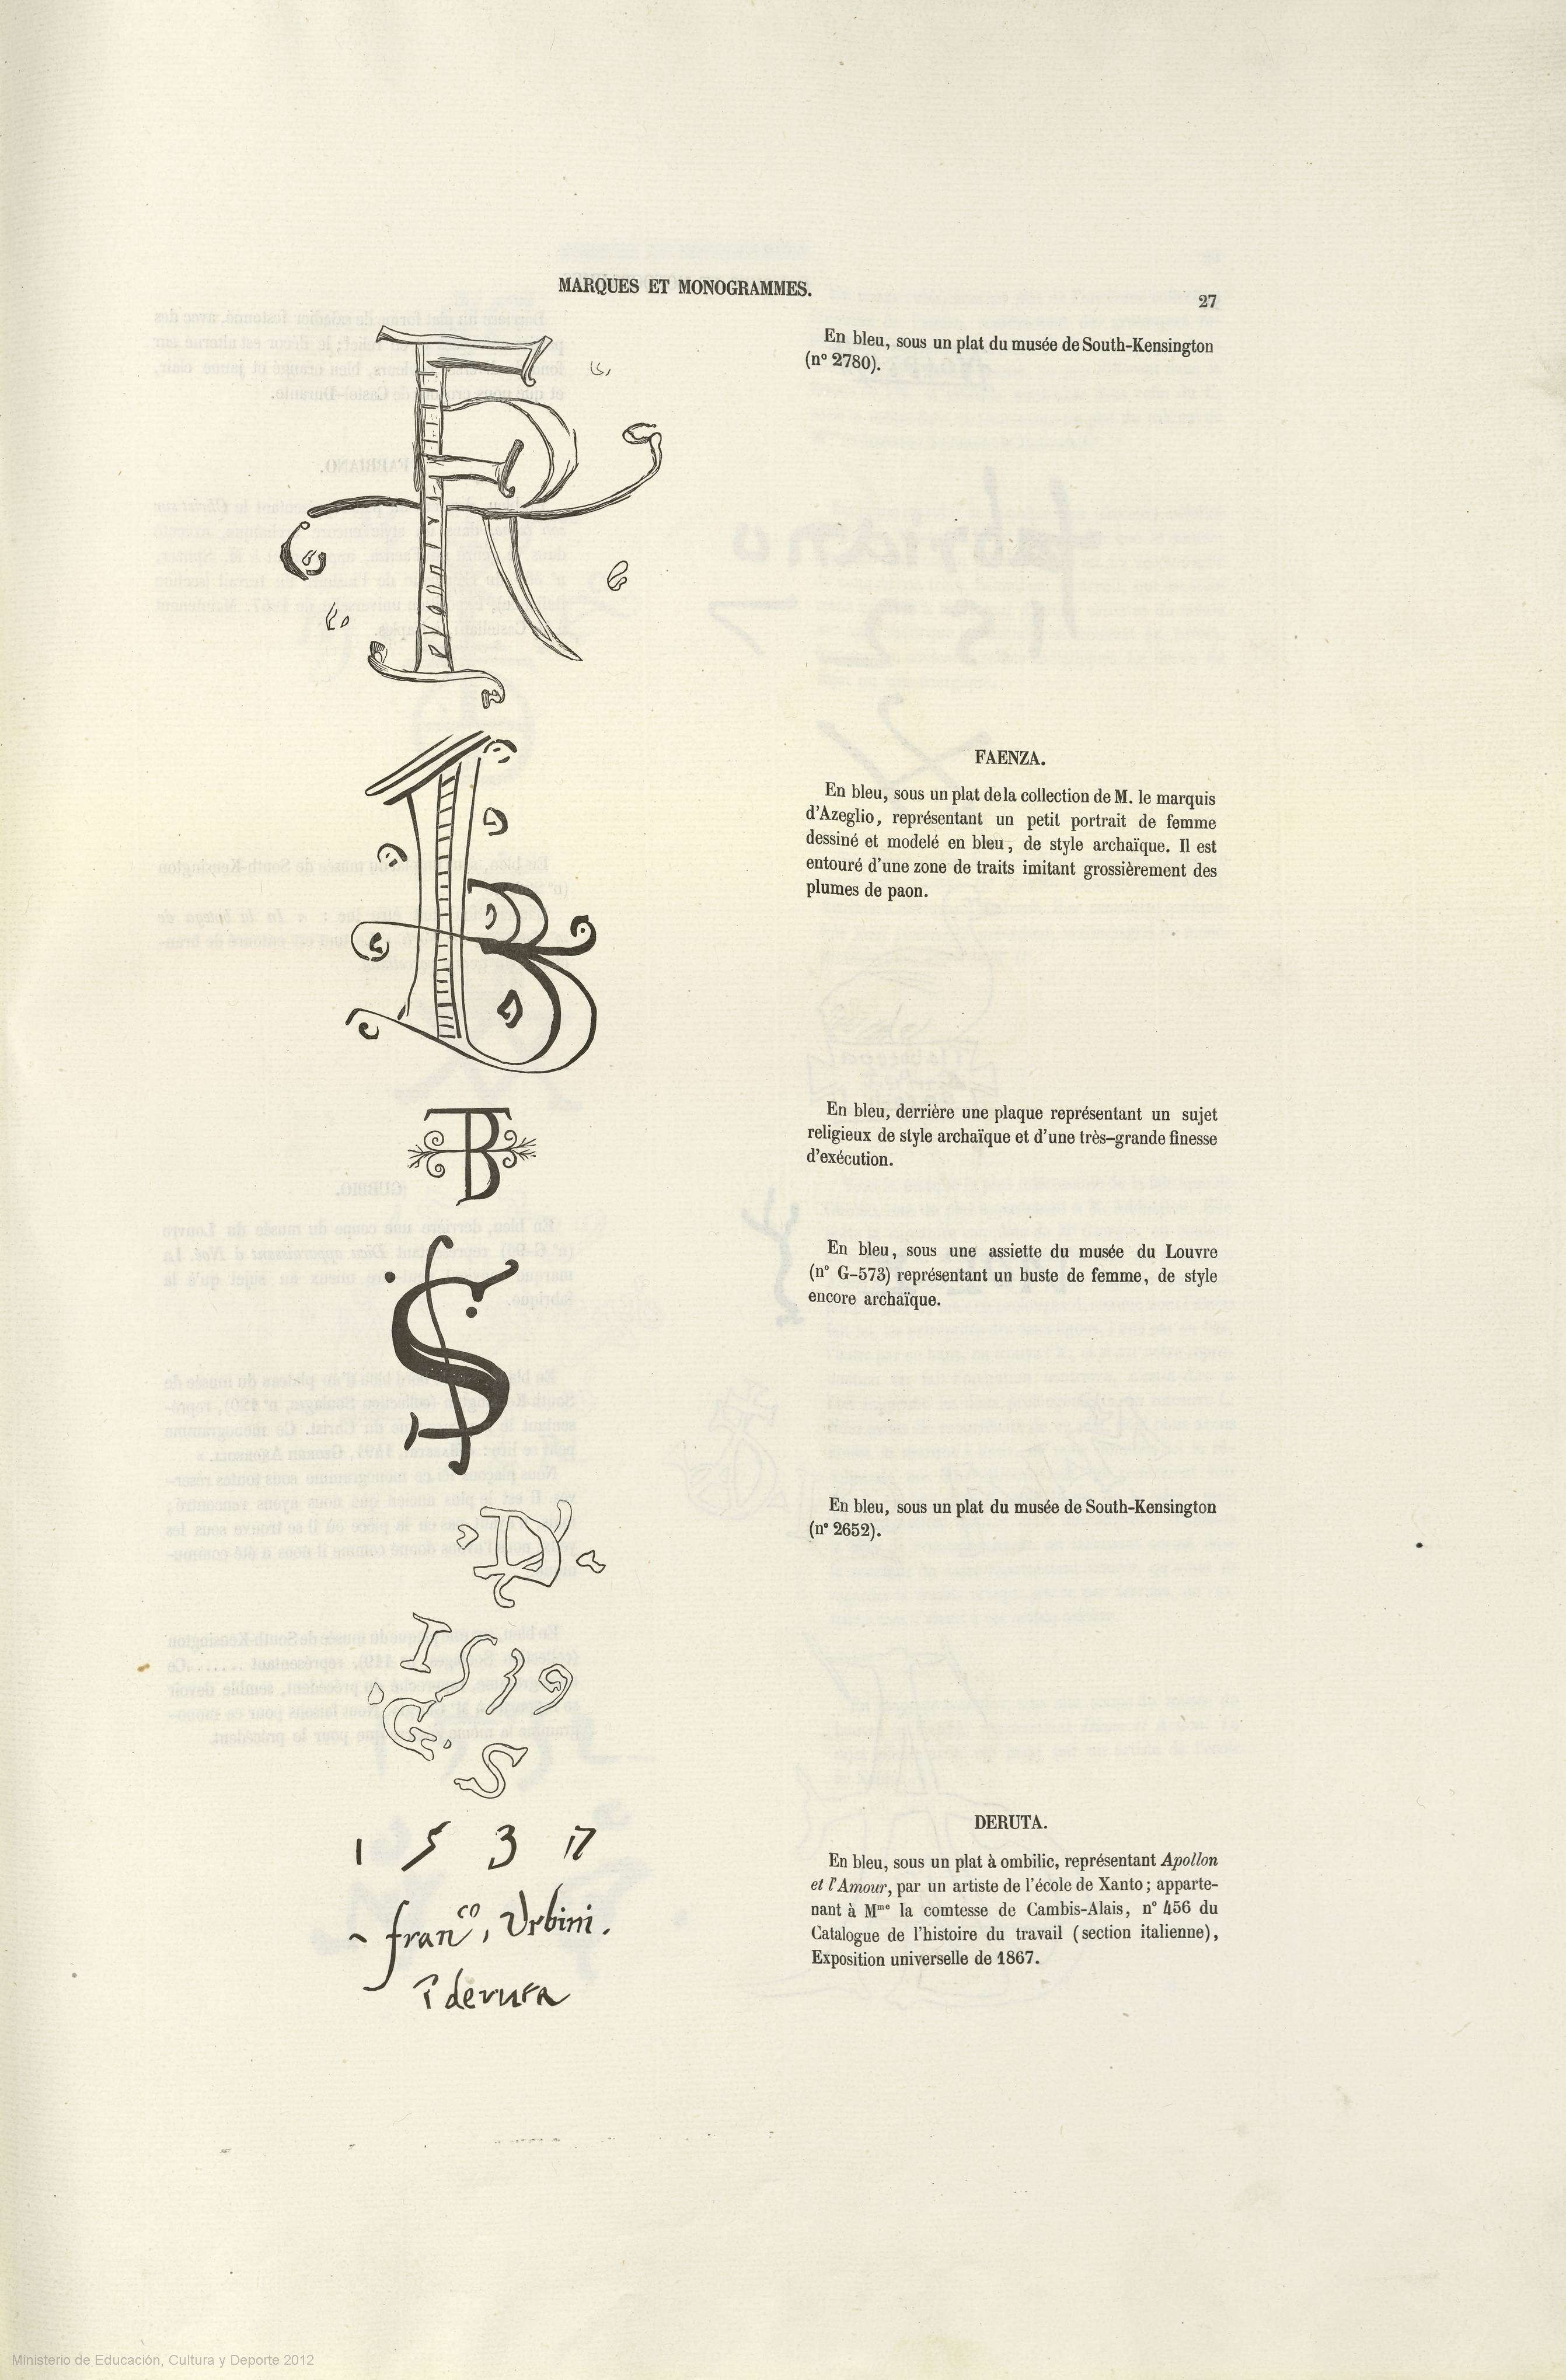 MARQUES ET MONOGRAMMES.
27
En bleu, sous un plat du musée de South-Kensington
(n° 2780).
FAENZA.
En bleu, sous un plat de la collection de M. le marquis
d'Azeglio, représentant un petit portrait de femme
dessiné et modelé en bleu, de style archaïque. Il est
entouré d'une zone de traits imitant grossièrement des
plumes de paon.
En bleu, derrière une plaque représentant un sujet
religieux de style archaïque et d'une très-grande finesse
d'exécution.
En bleu, sous une assiette du musée du Louvre
(n° G-573) représentant un buste de femme, de style
encore archaïque.
En bleu, sous un plat du musée de South-Kensington
(n° 2652).
1519
G.
S
1537
franco, Urbini.
î deruta
DERUTA.
En bleu, sous un plat à ombilic, représentant Apollon
et l'Amour, par un artiste de l'école de Xanto; apparte-
nant à Mme la comtesse de Cambis-Alais, n° 456 du
Catalogue de l'histoire du travail (section italienne),
Exposition universelle de 1867.
Ministerio de Educación, Cultura y Deporte 2012